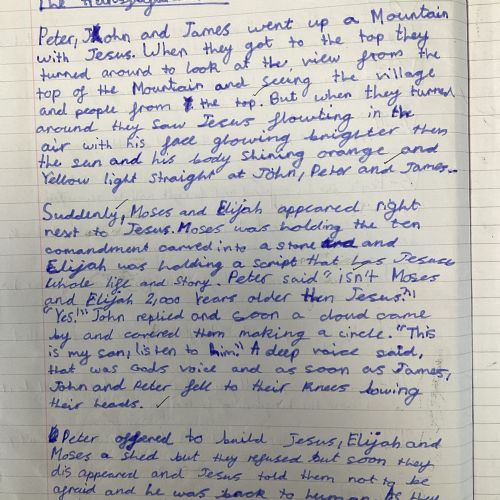 The Transfiguration
Peter, John and James went up a Mountain
with Jesus. When they got to the top they
turned around to look at the view from the
top of the Mountain and seeing the village
and people from the top. But when they turned
around they saw Jesus flowting in the
air with his face glowing brighter then
the sun and his body shining orange and
Yellow light straight at John, Peter and James.
Suddenly, Moses and Elijah appeared right
next to Jesus. Moses was holding the ten
comandment carved into a stone and and
Elijah was holding a script that has Jesuses
whole life and story. Peter said? isn't Moses
and Elijah 2,000 years older then Jesus?"
"Yes!" John replied and soon a cloud came
by and covered them making a circle. "This
is my son, listen to him." A deep voice said,
that was Gods voice and as soon as James,
John and Peter fell to their knees bowing
their heads.
Peter offered to build Jesus, Elijah and
Moses a shed but they refused but soon they
dis appeared and Jesus told them not to be
afraid and he was back to human as they